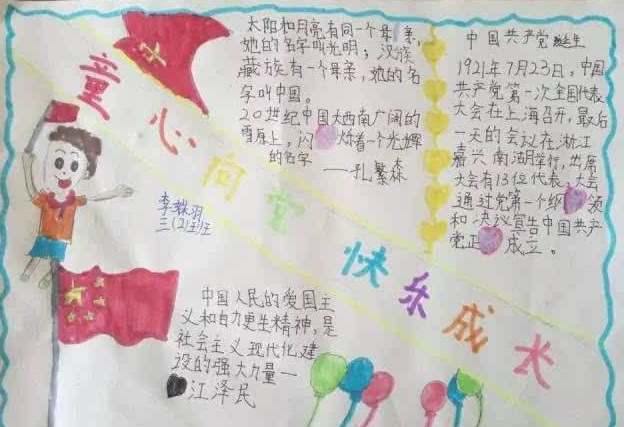 太阳和月亮有同一个母亲,
她的名字叫光明;汉族
藏族有一个母亲,她的名
字叫中国。
20世纪中国大西南广阔的
雪原上,闪 烁着一个光辉
的名字
——孔繁森
中国共产党诞生
1921年7月23日,中国
共产党第一次全国代表
大会在上海召开,最后
一天的会议在浙江
嘉兴南湖举行,出席
大会有13位代表,大会
通过党第一个纲 领
和决议宣告中国共产
党正 成立。
童心向党
快乐成长
三(2)班
中国人民的爱国主
义和自力更生精神,是
社会主义现代化建
设的强大力量一
江泽民